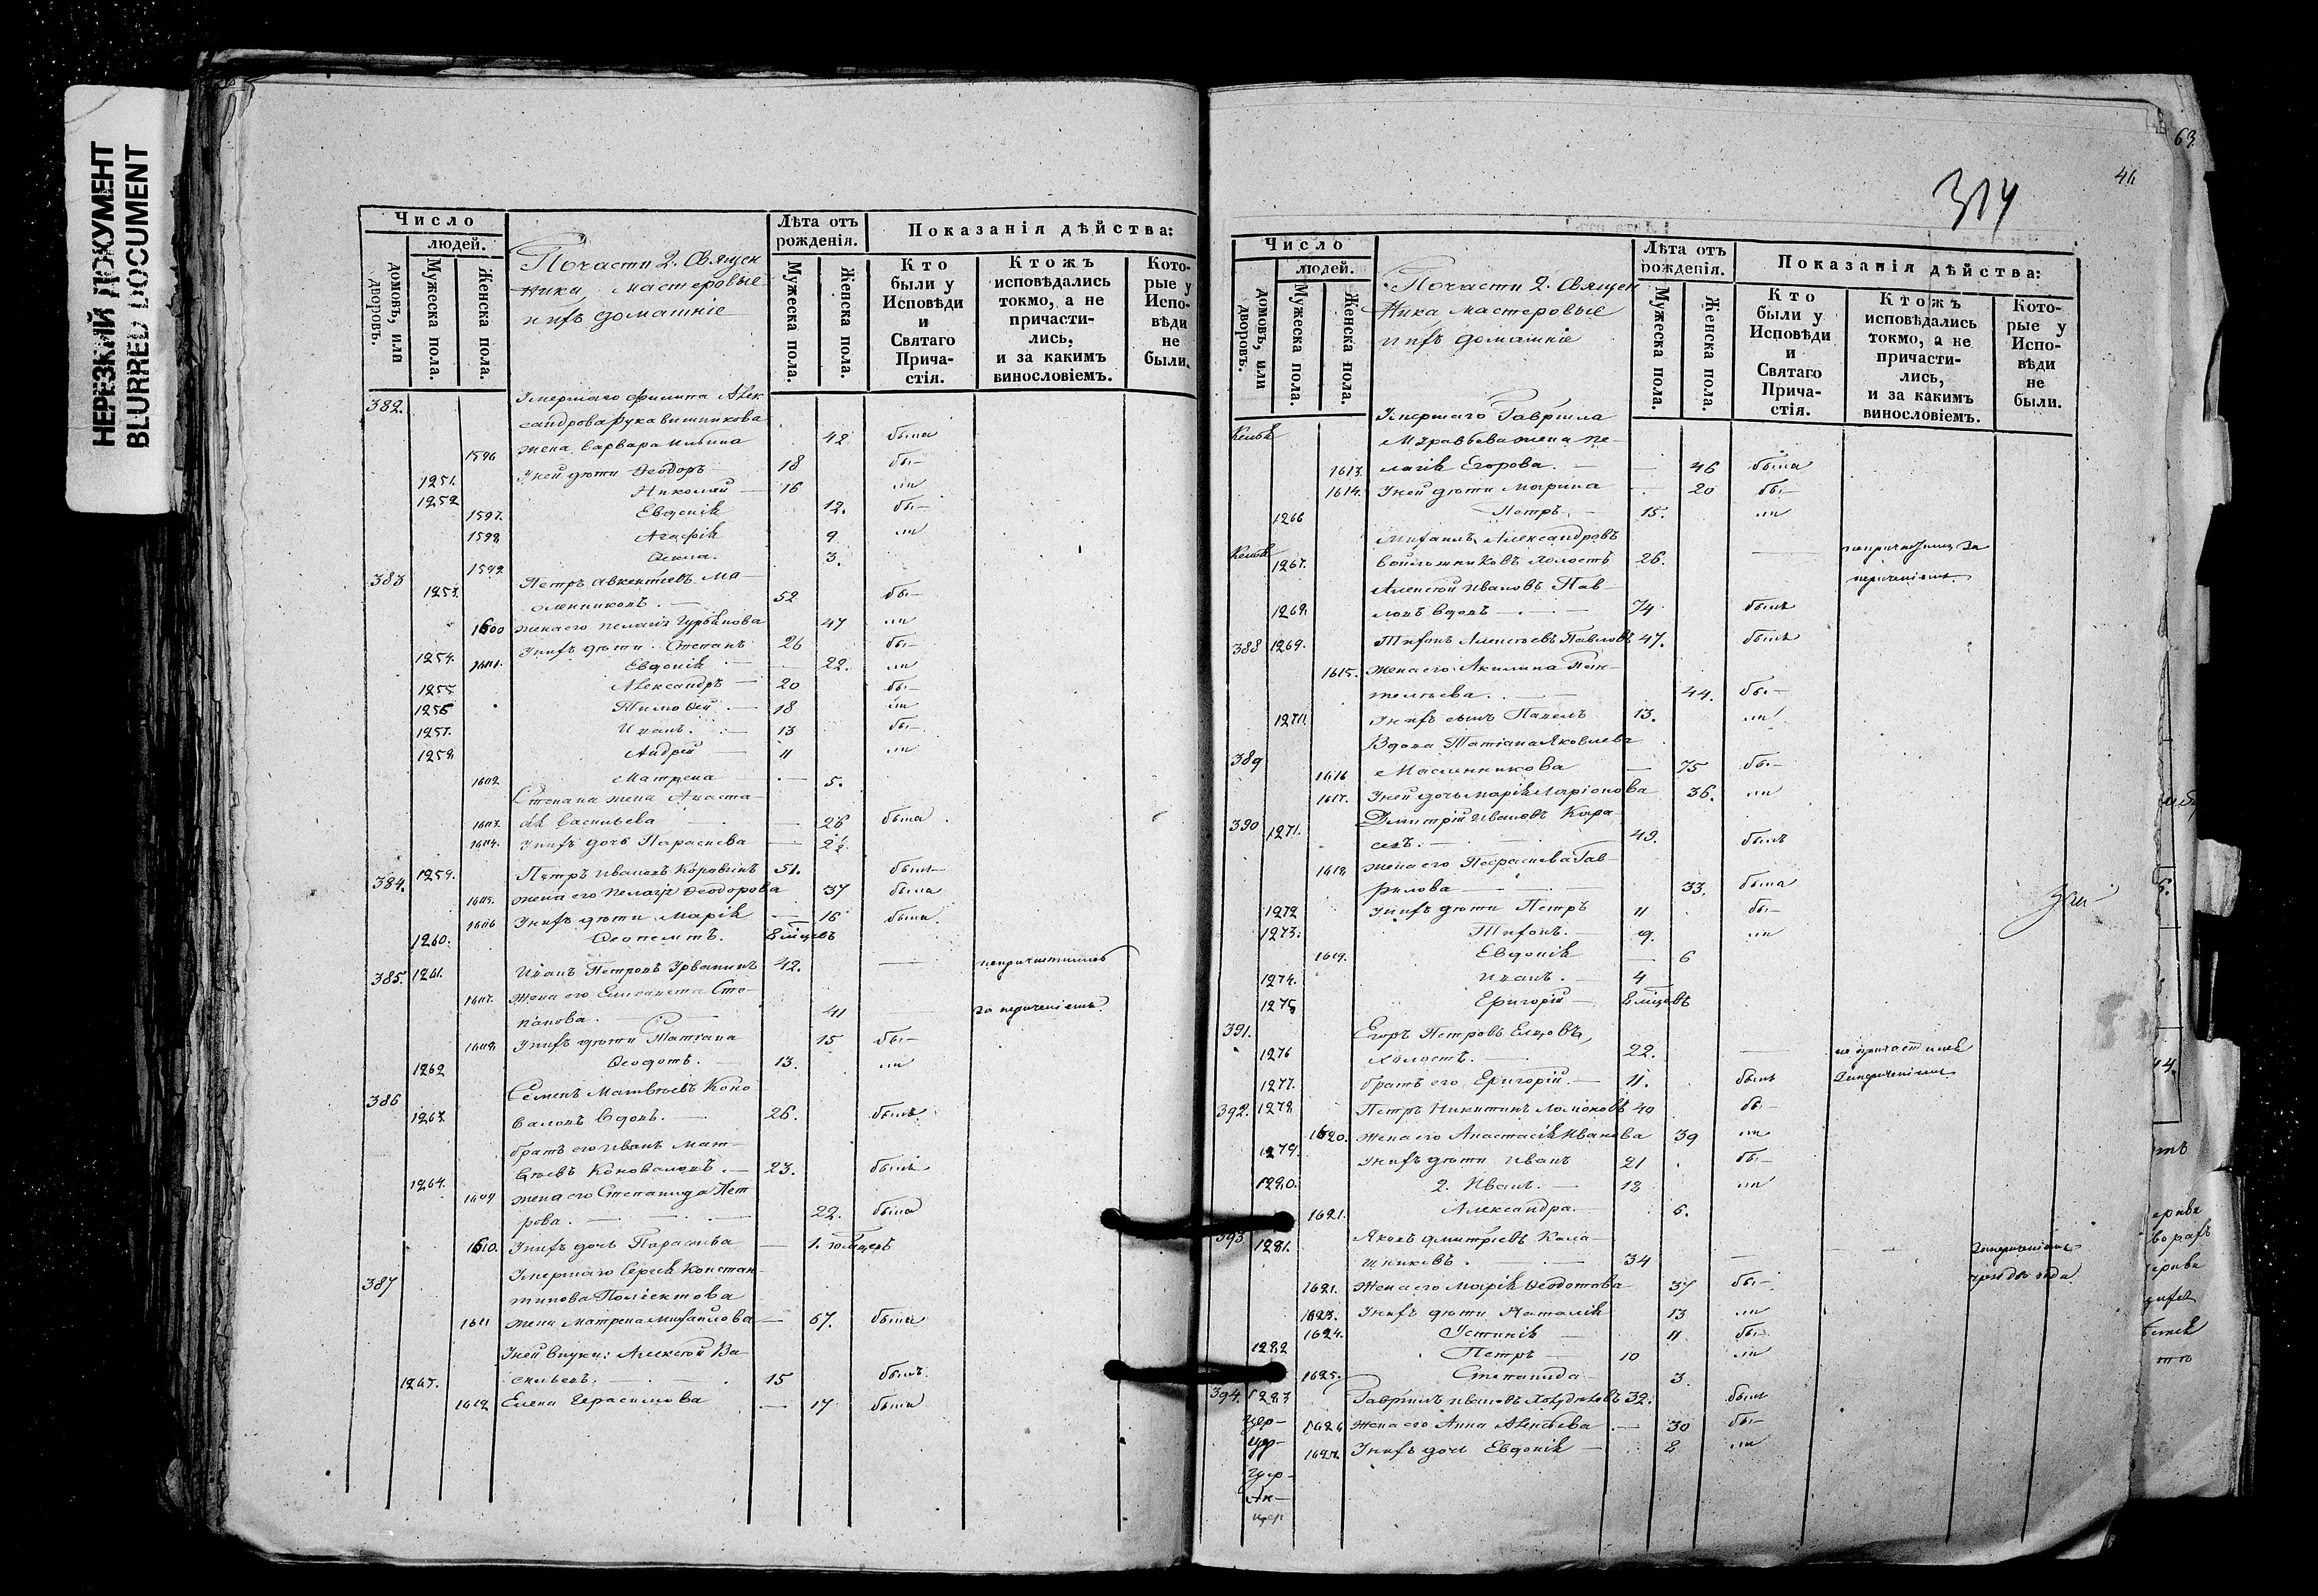 НЕРЕЗКИЙ ДОКУМЕНТ
BLURRED DOCUMENT
Число
людей.
домовъ, или дворовъ.
Мужеска пола.
Женска пола.
По части 2. Священ
ника мастеровые
и ихъ домашніе
Лѣта отъ рожденія.
Мужеска пола.
Женска пола.
Показанія дѣйства:
Кто были у Исповѣди и Святаго Прича-стія.
Ктожъ исповѣдались токмо, а не причасти-лись, и за какимъ винословіемъ.
Кото-рые у Испо-вѣди не были.
382. Умершаго Филипа Алек
сандрова Рукавишникова
1596 жена Варвара Ильина 42 была
1251. У ней дѣти Ѳеодоръ 18 бы-
1252 Николай 16 ли
1597. Евдокія 12. бы-
1598 Агафія 9 ли
1599 Ѳекла. 3.
383 1253. Петръ Авкентіевъ Ма-
сленниковъ. 52 бы-
1600 жена его Пелагія Гурьянова 47 ли
1254. У нихъ дѣти. Степанъ 26 бы-
1601. Евдокія 22. ли
1255 Александръ 20 бы-
1256 Тимоѳей 18 ли
1257. Иванъ. 13 бы-
1258 Андрей 11 ли
1602 Матрена 5.
Степана жена Анаста-
1603. сія Васильева 26 была
1604. У нихъ дочь Параскева 2½
384. 1259. Петръ Ивановъ Коравинъ 51. былъ
1605. жена его Пелагія Ѳеодорова 37 была
1606 У нихъ дѣти Марія 16 была
1260. Ѳеопемтъ. 8 мцевъ
385. 1261. Иванъ Петровъ Урванинъ 42.
1607. Жена его Елисавета Сте-
панова. 41
1608 У нихъ дѣти Татіана 15 бы-
1262 Ѳеодотъ. 13. ли
386 Семенъ Матвѣевъ Коно
1263. валовъ вдовъ. 26. былъ
братъ его Иванъ Мат-
1264. вѣевъ Коноваловъ. 23. былъ
1609 жена его Степанида Пет
рова. 22. была
1610. У нихъ дочь Параскева 1. годъ
387 Умершаго Сергія Констан
тинова Поліектова
1611 жена Матрена Михайлова 67. была
У ней внуки: Алексѣй Ва-
1265. сильевъ. 15 былъ
1612 Елена Герасимова 17 была
63
46
314
Число
людей.
домовъ, или дворовъ.
Мужеска пола.
Женска пола.
По части 2. Священ
ника мастеровые
и ихъ домашніе
Лѣта отъ рожденія.
Мужеска пола.
Женска пола.
Показанія дѣйства:
Кто были у Исповѣди и Святаго Прича-стія.
Ктожъ исповѣдались токмо, а не причасти-лись, и за какимъ винословіемъ.
Кото-рые у Испо-вѣди не были.
Келья Умершаго Гавріила
Муравьева жена Пе-
1613. лагія Егорова. 46 была
1614. У ней дѣти Марина 20 бы-
1266 Петръ 15. ли
Келья Михаилъ Александровъ
1267. холостъ 26.
Алексѣй Ивановъ Пав-
1268. ловъ вдовъ 74 былъ
388 1269. Тихонъ Алексѣевъ Павловъ 47. былъ
1615. жена его Акилина Пан-
телѣева. 44. бы-
1270. У нихъ сынъ Павелъ 13. ли
389 Вдова Татіана Яковлева
1616 Масленникова 75 бы-
1617. У ней дочь Марія Ларіонова 36. ли
390 1271. Димитрій Ивановъ Кара
севъ. 49. былъ
1618 жена его Параскева Гав-
рилова 33. была
1272 У нихъ дѣти Петръ 11 бы-
1273. Тихонъ. 9. ли
1619. Евдокія 6
1274. Иванъ. 4
1275 Григорій 8 мцевъ
391. Егоръ Петровъ Елцовъ,
1276 холостъ. 22.
1277. братъ его Григорій. 11. былъ
392. 1278 Петръ Никитинъ Ломоновъ 40 бы-
1620. жена его Анастасія Иванова 39 ли
1279. У нихъ дѣти Иванъ 21 бы-
1280. 2. Иванъ. 18 ли
1621. Александра. 6.
393 1281. Яковъ Дмитріевъ Кала-
шниковъ. 34
1622. Жена его Марія Ѳеодотова 37 бы-
1623. У нихъ дѣти Наталія 13 ли
1624. Устинія 11 бы-
1282 Петръ 10 ли
1625. Степанида 3
394. 1283 Гавріилъ Ивановъ 32. былъ
1626 жена его Анна Алексѣева 30 бы-
1627. У нихъ дочь Евдокія 8 ли